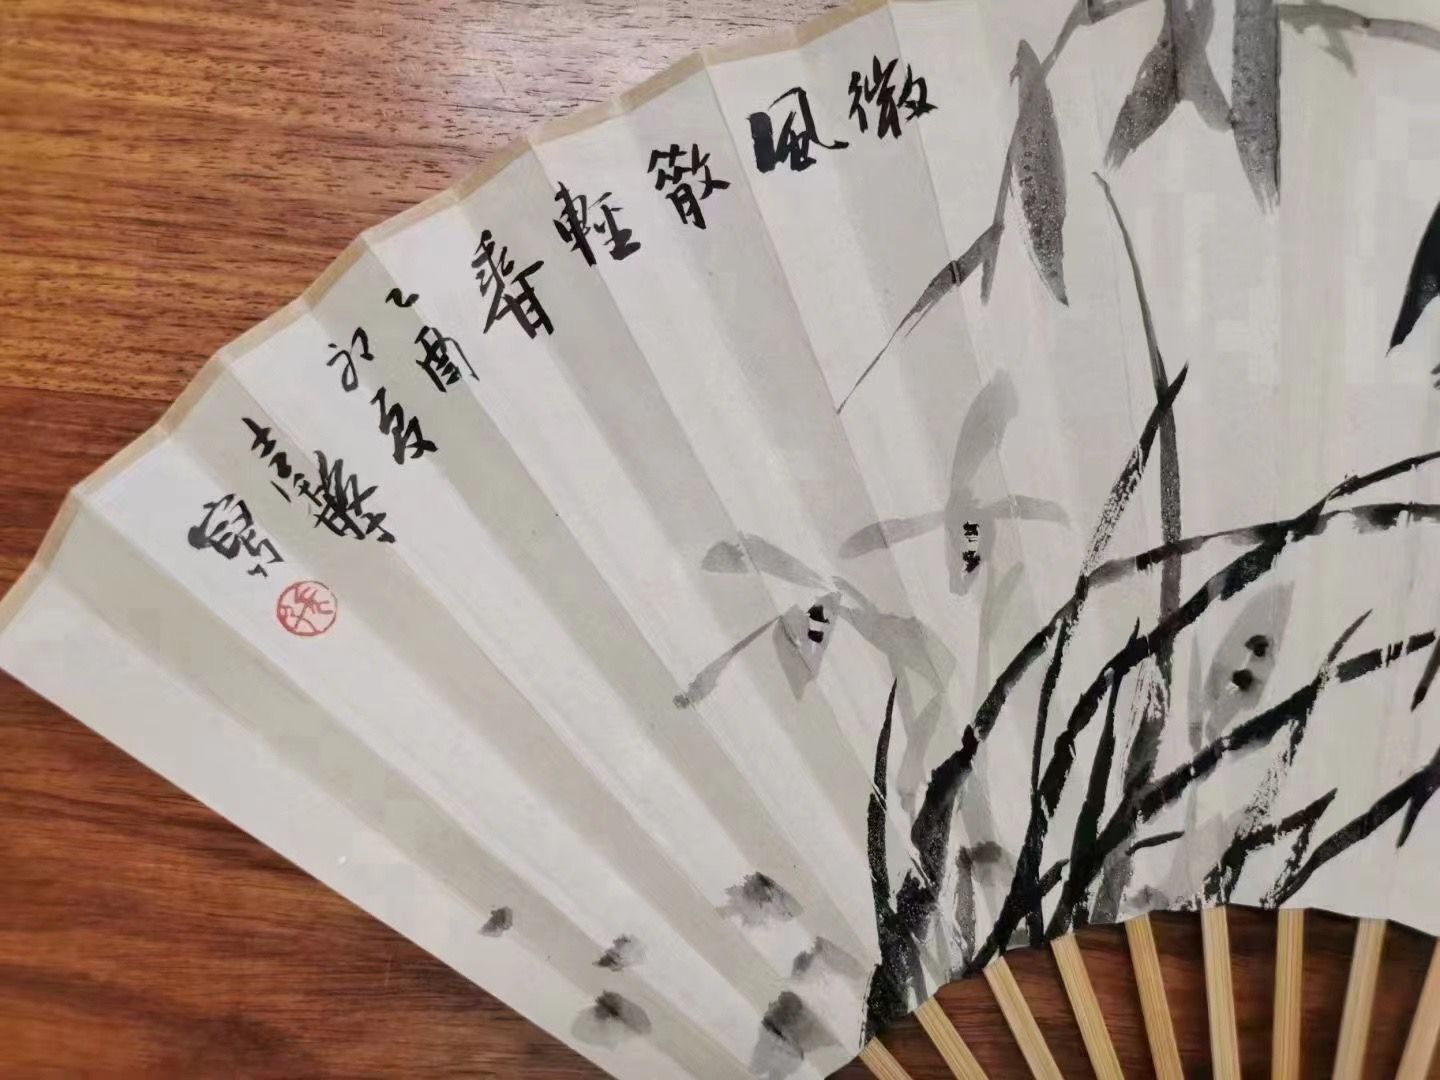 微風散輕香
乙酉
初夏
寫